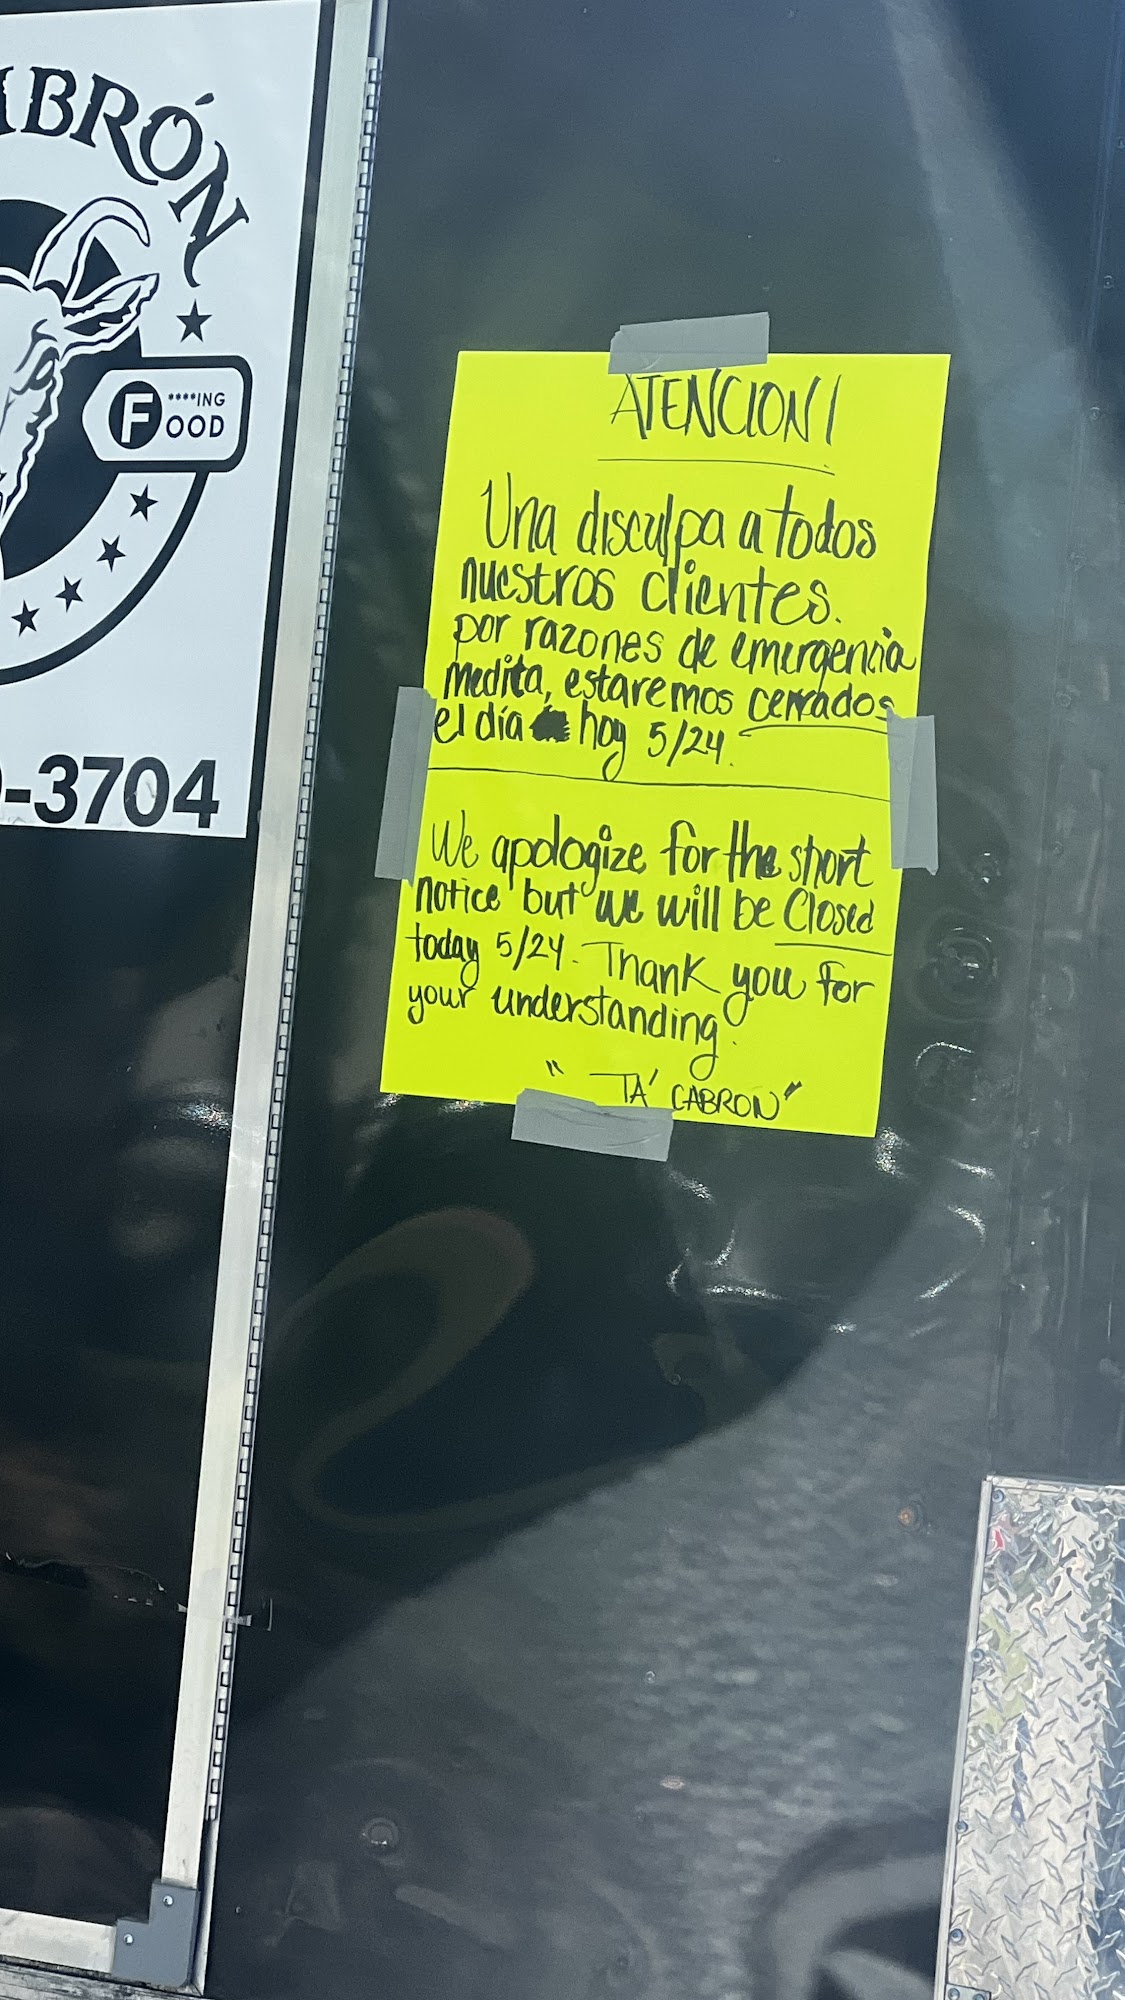 ABRÓN
F ****ING
OOD
-3704
ATENCION!
Una disculpa a todos
nuestros clientes.
por razones de emergencia
medica, estaremos cerrados
el día hoy 5/24.
We apologize for the short
notice but we will be Closed
today 5/24. Thank you for
your understanding.
" TA' CABRON"